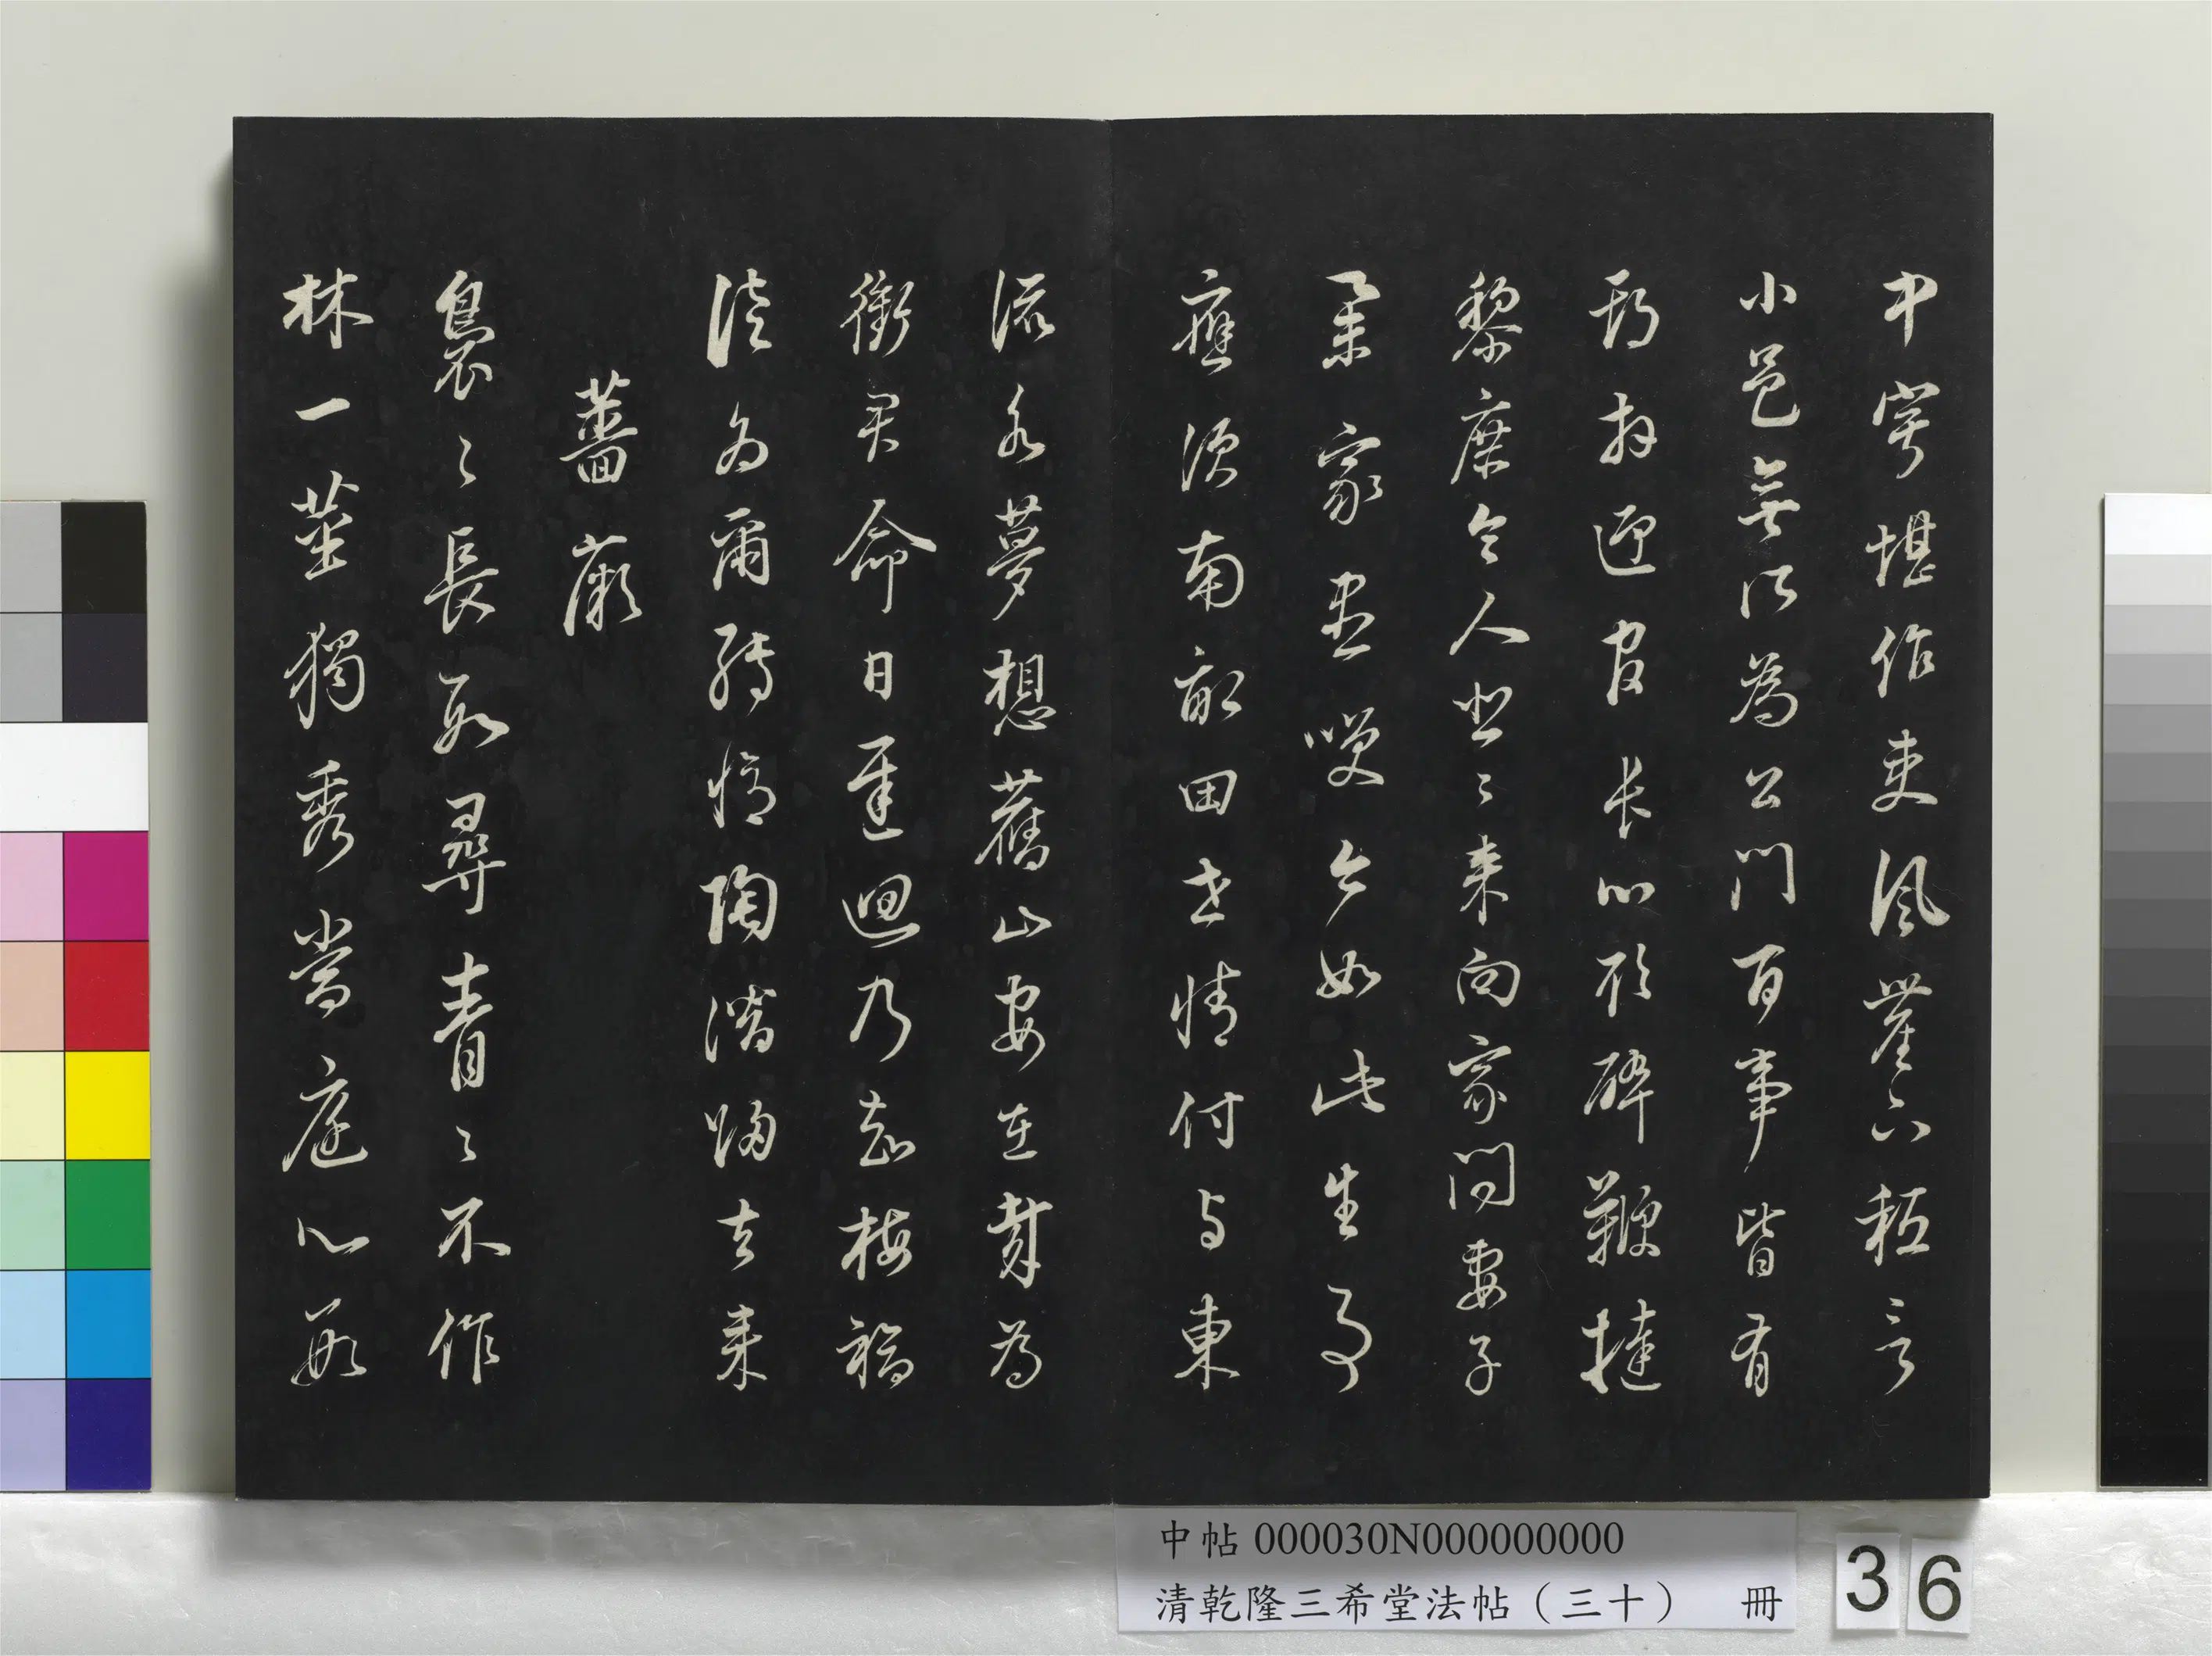 中寧堪作吏風塵下秪言
小邑無所為公門百事皆有
期拜迎官長心欲碎鞭撻
黎庶令人悲〻来向家問妻子
舉家盡𠲒今如此生事
應須南畝田世情付與東
流水夢想舊山安在哉為
銜君命日遲迴乃知梅福
徒為爾轉憶陶潛歸去来
薔薇
裊〻長數尋青〻不作
林一莖獨秀當庭心數
中帖 000030N000000000
清乾隆三希堂法帖（三十） 冊
36